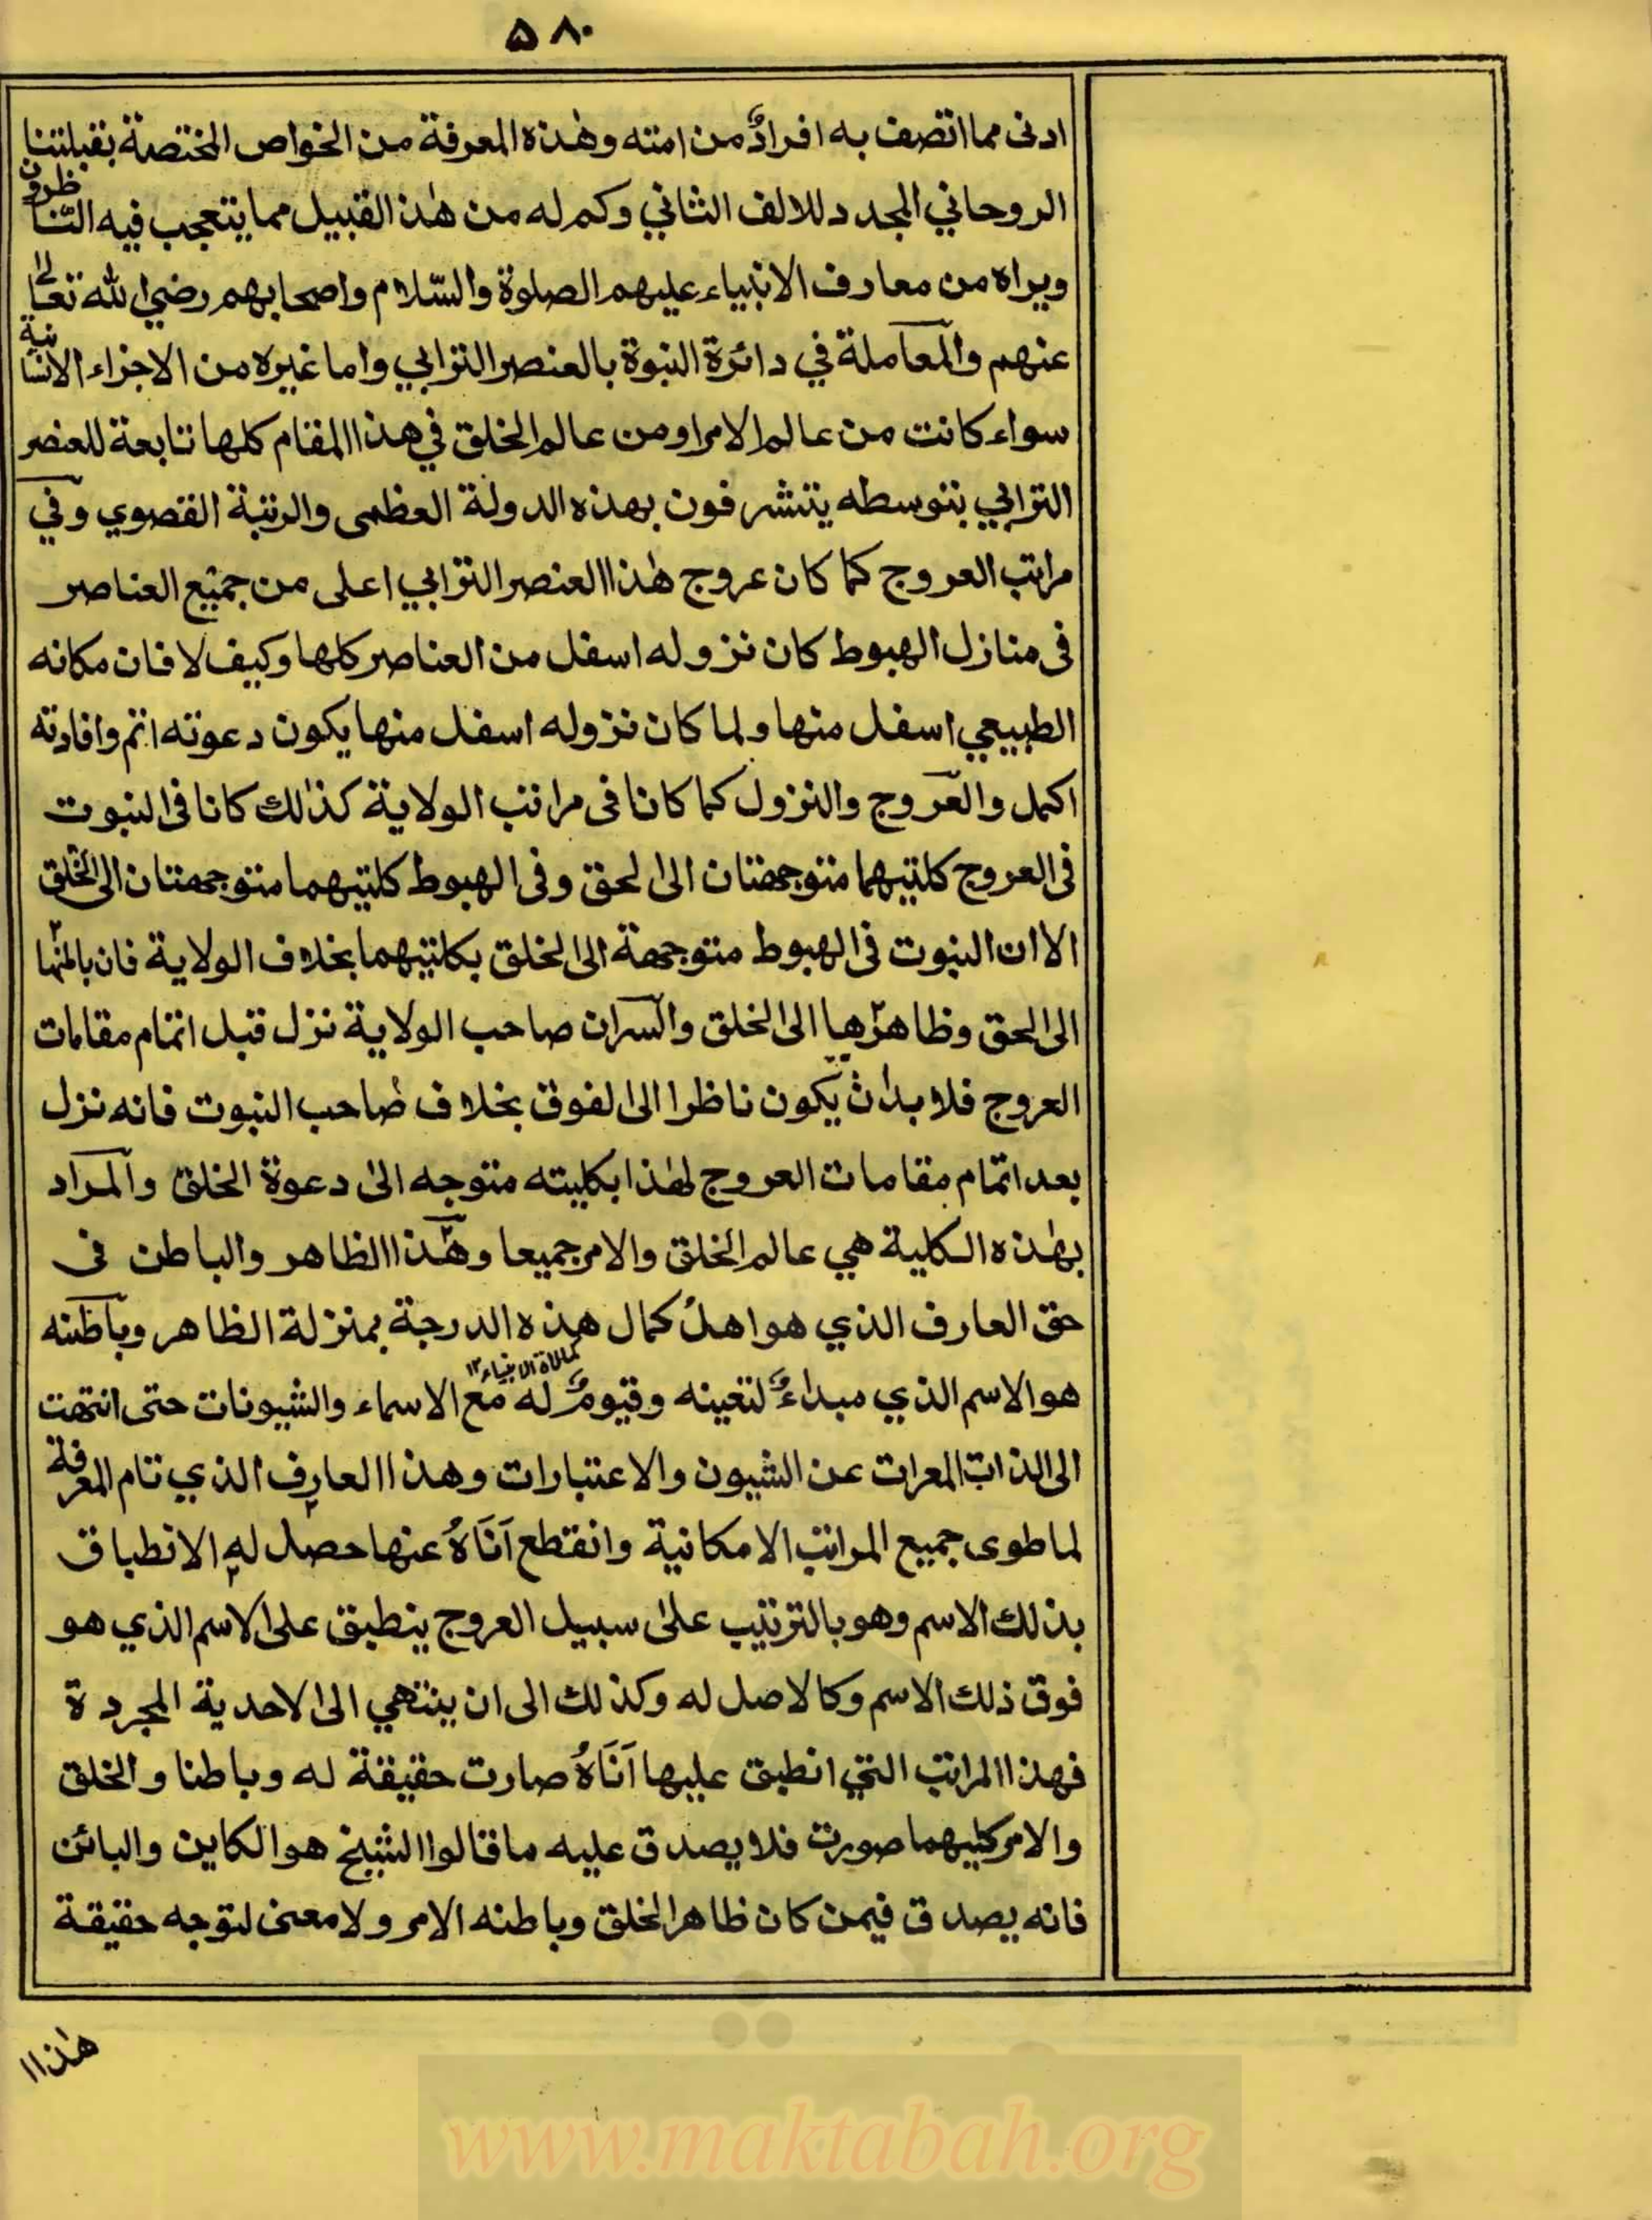 ۵۸۰
ادنى مما اتصف به افرادٌ من امته وهٰذه المعرفة من الخواص المختصة بقبلتنا
الروحاني المجدد للالف الثاني وكم له من هٰذ القبيل مما يتعجب فيه النّاظرون
ويراه من معارف الانبياء عليهم الصلوة والسّلام واصحابهم رضي الله تعالىٰ
عنهم والمعاملة في دائرة النبوة بالعنصر الترابي واما غيره من الاجزاء الانسانية
سواء كانت من عالم الامر او من عالم الخلق في هذا المقام كلها تابعة للعنصر
الترابي بتوسطه يتشرفون بهذه الدولة العظمى والرتبة القصوي وفي
مراتب العروج كما كان عروج هٰذا العنصر الترابي اعلى من جميع العناصر
فى منازل الهبوط كان نزوله اسفل من العناصر كلها وكيف لا فان مكانه
الطبيعي اسفل منها ولما كان نزوله اسفل منها يكون دعوته اتم وافادته
اكمل والعروج والنزول كما كانا فى مراتب الولاية كذٰلك كانا فى النبوت
فى العروج كلتيهما متوجهتان الى الحق وفى الهبوط كلتيهما متوجهتان الى الخلق
الا ان النبوت فى الهبوط متوجهة الى الخلق بكلتيهما بخلاف الولاية فان
الى الحق وظاهرها الى الخلق والسران صاحب الولاية نزل قبل اتمام مقامات
العروج فلا بد ان يكون ناظرا الى الفوق بخلاف صاحب النبوت فانه نزل
بعد اتمام مقامات العروج لهٰذا بكليته متوجه الىٰ دعوة الخلق والمراد
بهٰذه الكلية هي عالم الخلق والامر جميعا وهٰذا الظاهر والباطن فى
حق العارف الذي هو اهلُ كمال هذه الدرجة بمنزلة الظاهر وباطنه
كمالاة الانبياء ١٢
هو الاسم الذي مبداءٌ لتعينه وقيومٌ له مع الاسماء والشيونات حتى انتهت
الى الذات المعرات عن الشيون والاعتبارات وهذا العارف الذي تام المعرفة
لما طوى جميع المراتب الامكانية وانقطع اَنَاهُ عنها حصل له الانطباق
بذلك الاسم وهو بالترتيب علىٰ سبيل العروج ينطبق على الاسم الذي هو
فوق ذلك الاسم وكالاصل له وكذلك الى ان ينتهي الى الاحدية المجردة
فهذا المراتب التي انطبق عليها اَنَاهُ صارت حقيقة له وباطنا والخلق
والامر كليهما صورت فلا يصدق عليه ما قالوا الشيخ هو الكاين والبائن
فانه يصدق فيمن كان ظاهر الخلق وباطنه الامر ولا معنى لتوجه حقيقة
هٰذا١١
www.maktabah.org